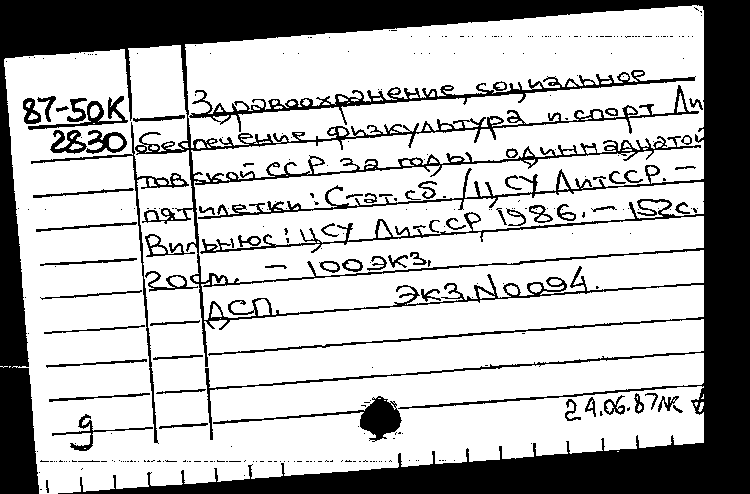 87-50К Здравоохранение, социальное
2830 обеспечение, физкультура и спорт Ли
товской ССР за годы одиннадцатой
пятилетки: Стат. сб. / ЦСУ ЛитССР. –
Вильнюс: ЦСУ ЛитССР, 1986. – 152с.
20см. – 100экз.
ДСП. Экз. N0094.
24.06.87
g